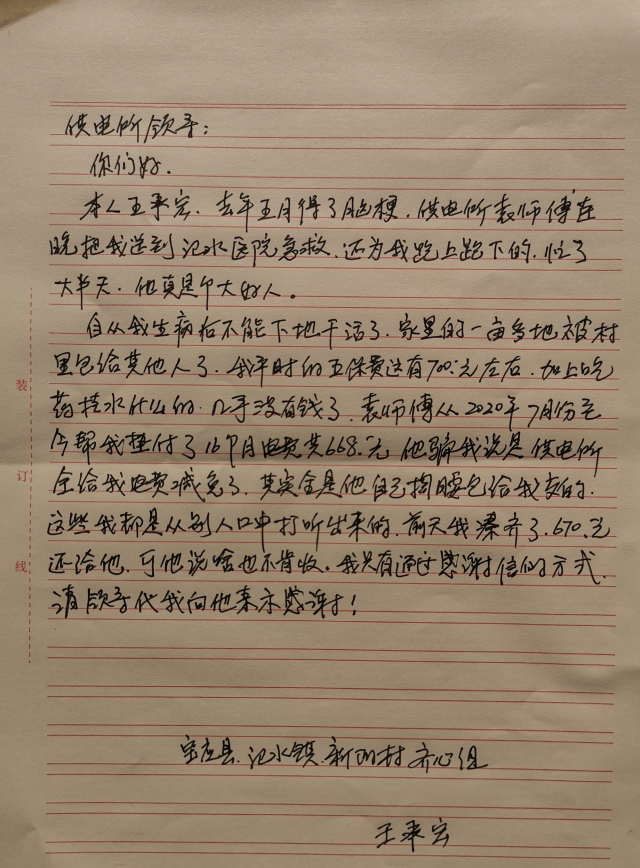 供电所领导：
你们好．
本人王来宏、去年五月得了脑梗．供电所袁师傅连
晚把我送到氾水医院急救、还为我跑上跑下的．忙了
大半天．他真是个大好人。
自从我生病后不能下地干活了．家里的一亩多地被村
里包给其他人了．我平时的五保费只有700元左右．加上吃
药挂水什么的．几乎没有钱了．袁师傅从2020年7月份至
今帮我垫付了16个月电费共668元．他骗我说是供电所
全给我电费减免了．其实全是他自己掏腰包给我交的．
这些我都是从别人口中打听出来的．前天我凑齐了670元
还给他．可他说啥也不肯收．我只有通过感谢信的方式．
请领导代我向他表示感谢！
宝应县氾水镇新明村齐心组
王来宏
装
订
线